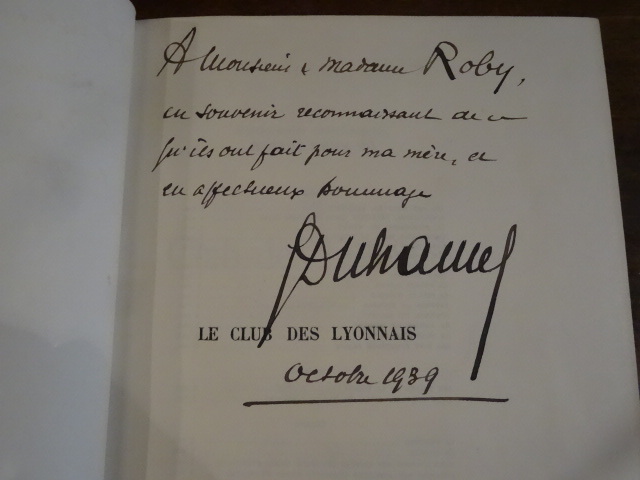 A Monsieur & madame Roby,
en souvenir reconnaissant de ce
qu'ils ont fait pour ma mère, et
en affectueux hommage
GDuhamel
LE CLUB DES LYONNAIS
Octobre 1939